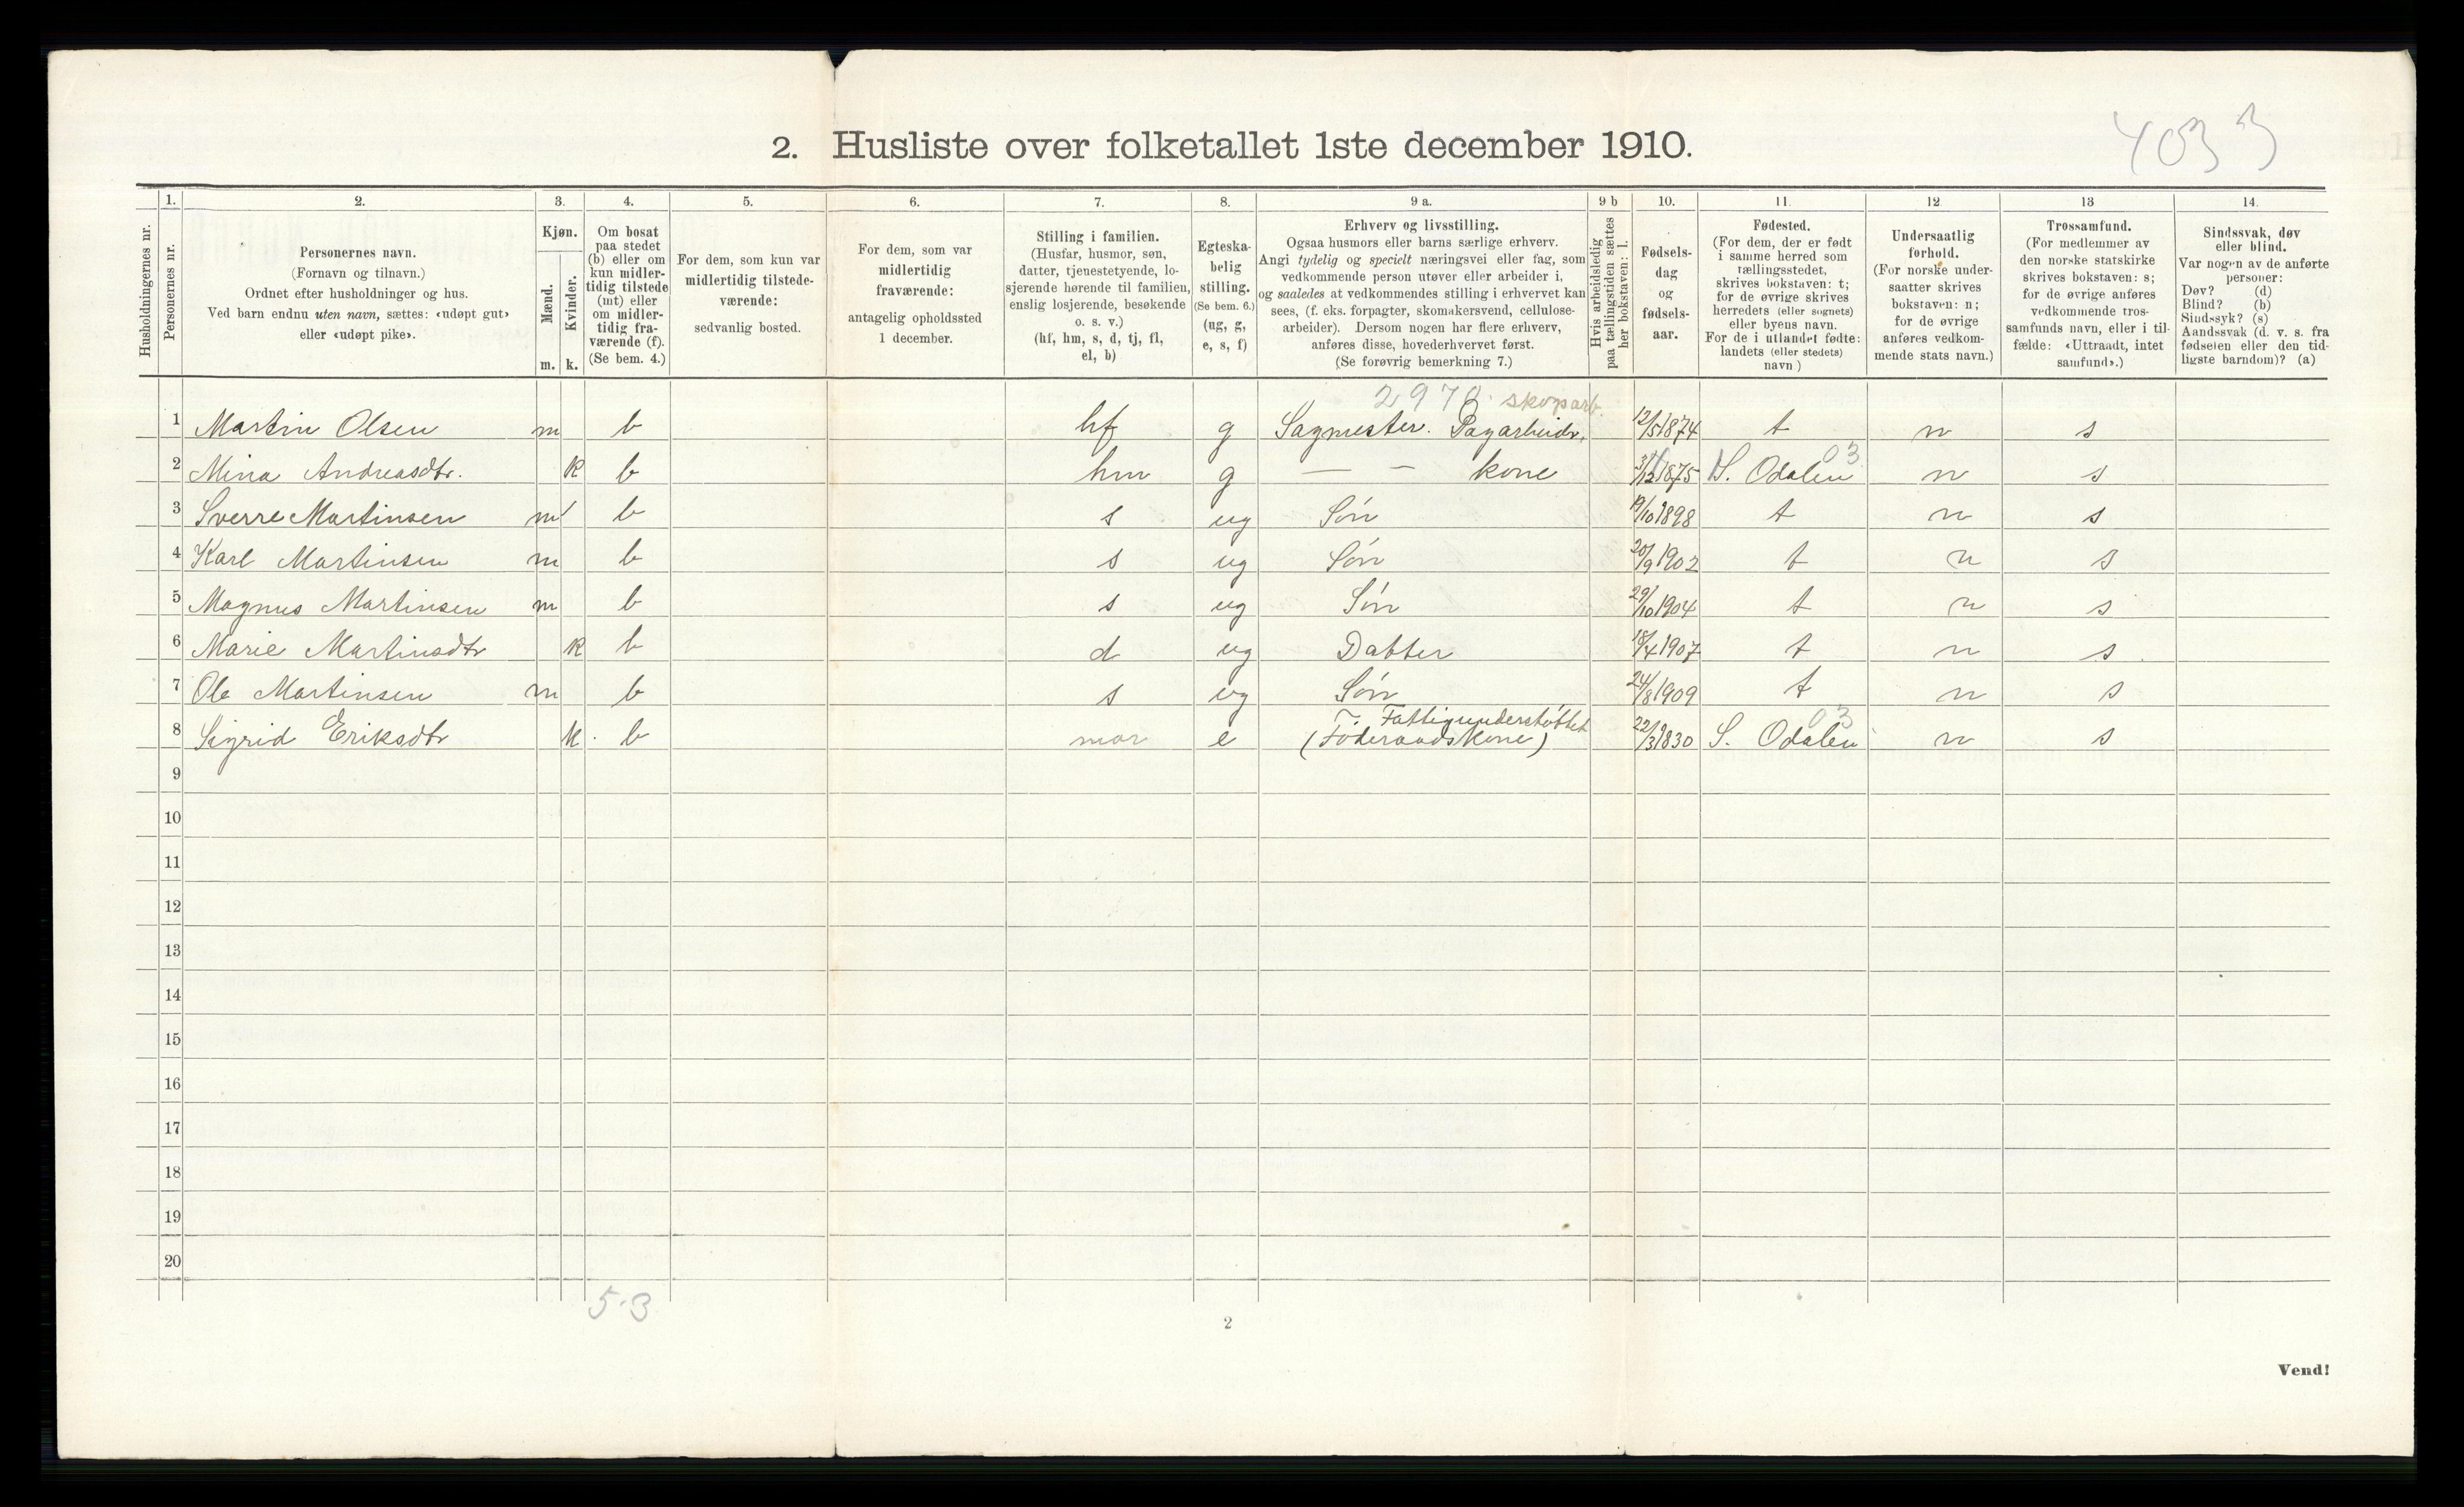 4033
2. Husliste over folketallet 1ste december 1910.
Husholdningernes nr.
1. Personernes nr.
2. Personernes navn. (Fornavn og tilnavn.) Ordnet efter husholdninger og hus. Ved barn endnu uten navn, sættes: «udøpt gut» eller «udøpt pike».
3. Kjøn. Mænd. m. Kvinder. k.
4. Om bosat paa stedet (b) eller om kun midlertidig tilstede (mt) eller om midlertidig fraværende (f). (Se bem. 4.)
5. For dem, som kun var midlertidig tilstedeværende: sedvanlig bosted.
6. For dem, som var midlertidig fraværende: antagelig opholdssted 1 december.
7. Stilling i familien. (Husfar, husmor, søn, datter, tjenestetyende, losjerende hørende til familien, enslig losjerende, besøkende o. s. v.) (hf, hm, s, d, tj, fl, el, b)
8. Egteskabelig stilling. (Se bem. 6.) (ug, g, e, s, f)
9 a. Erhverv og livsstilling. Ogsaa husmors eller barns særlige erhverv. Angi tydelig og specielt næringsvei eller fag, som vedkommende person utøver eller arbeider i, og saaledes at vedkommendes stilling i erhvervet kan sees, (f. eks. forpagter, skomakersvend, cellulosearbeider). Dersom nogen har flere erhverv, anføres disse, hovederhvervet først. (Se forøvrig bemerkning 7.)
9 b Hvis arbeidsledig paa tællingstiden sættes her bokstaven: l.
10. Fødselsdag og fødselsaar.
11. Fødested. (For dem, der er født i samme herred som tællingsstedet, skrives bokstaven: t; for de øvrige skrives herredets (eller sognets) eller byens navn. For de i utlandet fødte: landets (eller stedets) navn)
12. Undersaatlig forhold. (For norske undersaatter skrives bokstaven: n; for de øvrige anføres vedkommende stats navn.)
13 Trossamfund. (For medlemmer av den norske statskirke skrives bokstaven: s; for de øvrige anføres vedkommende trossamfunds navn, eller i tilfælde: «Uttraadt, intet samfund».)
14. Sindssvak, døv eller blind. Var nogen av de anførte personer: Døv? (d) Blind? (b) Sindssyk? (s) Aandssvak (d. v. s. fra fødselen eller den tidligste barndom)? (a)
2970. skogarb.
1 Martin Olsen m b hf g Sagmester. Dagarbeidr. 12/5 1874 t n s
2 Mina Andreasdtr. k b hm g — - kone 1875 S. Odalen 03 n s
3 Sverre Martinsen m b s ug Søn 19/10 1898 t n s
4 Karl Martinsen m b s ug Søn 20/9 1902 t n s
5 Magnus Martinsen m b s ug Søn 29/10 1904 t n s
6 Marie Martinsdtr k b d ug Datter 18/4 1907 t n s
7 Ole Martinsen m b s ug Søn 24/8 1909 t n s
8 Sigrid Eriksdtr k b mor e Fattigunderstøttet (Føderaadskone) 22/3 1830 S. Odalen 03 n s
9
10
11
12
13
14
15
16
17
18
19
20
5-3
2
Vend!